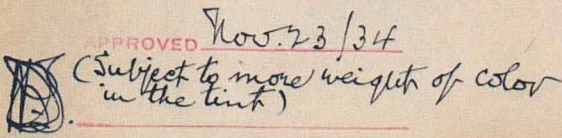 APPROVED Nov. 23/34
(Subject to more weight of color
in the tint)